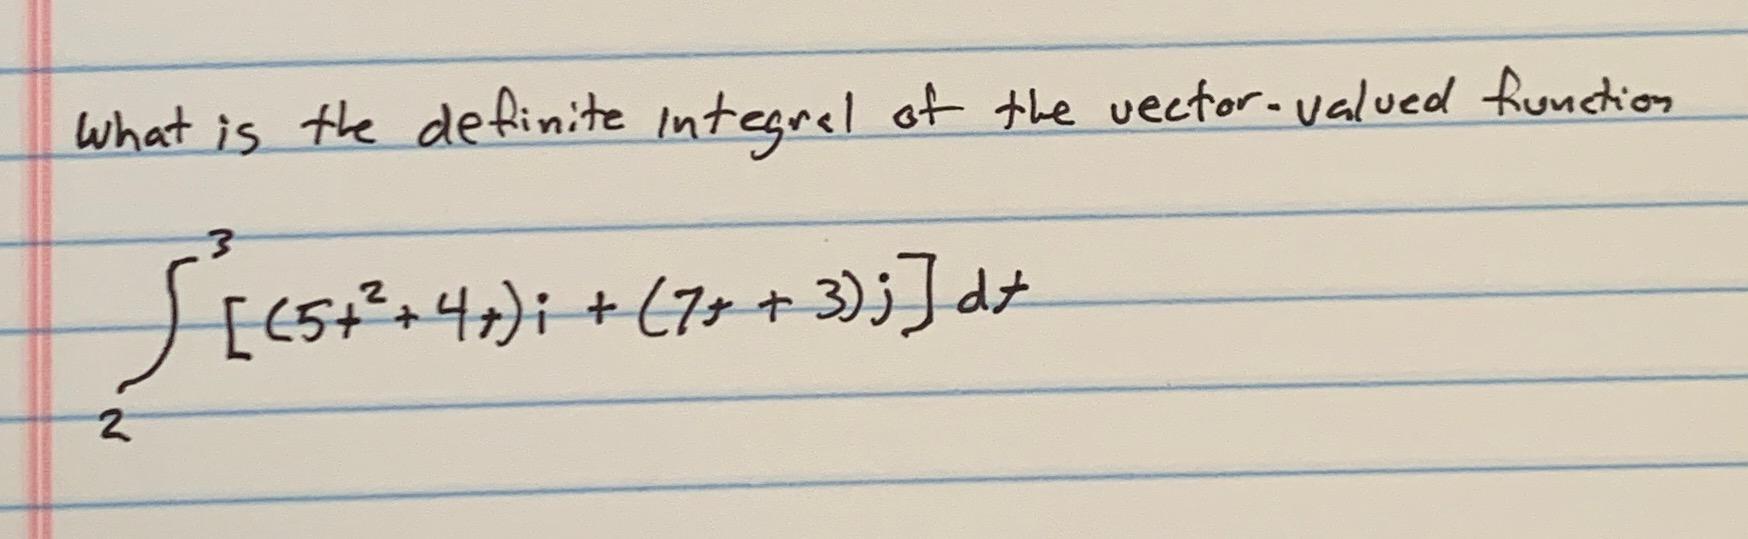 What is the definite integral of the vector-valued function
∫₂³ [(5t² + 4t)i + (7t + 3)j] dt